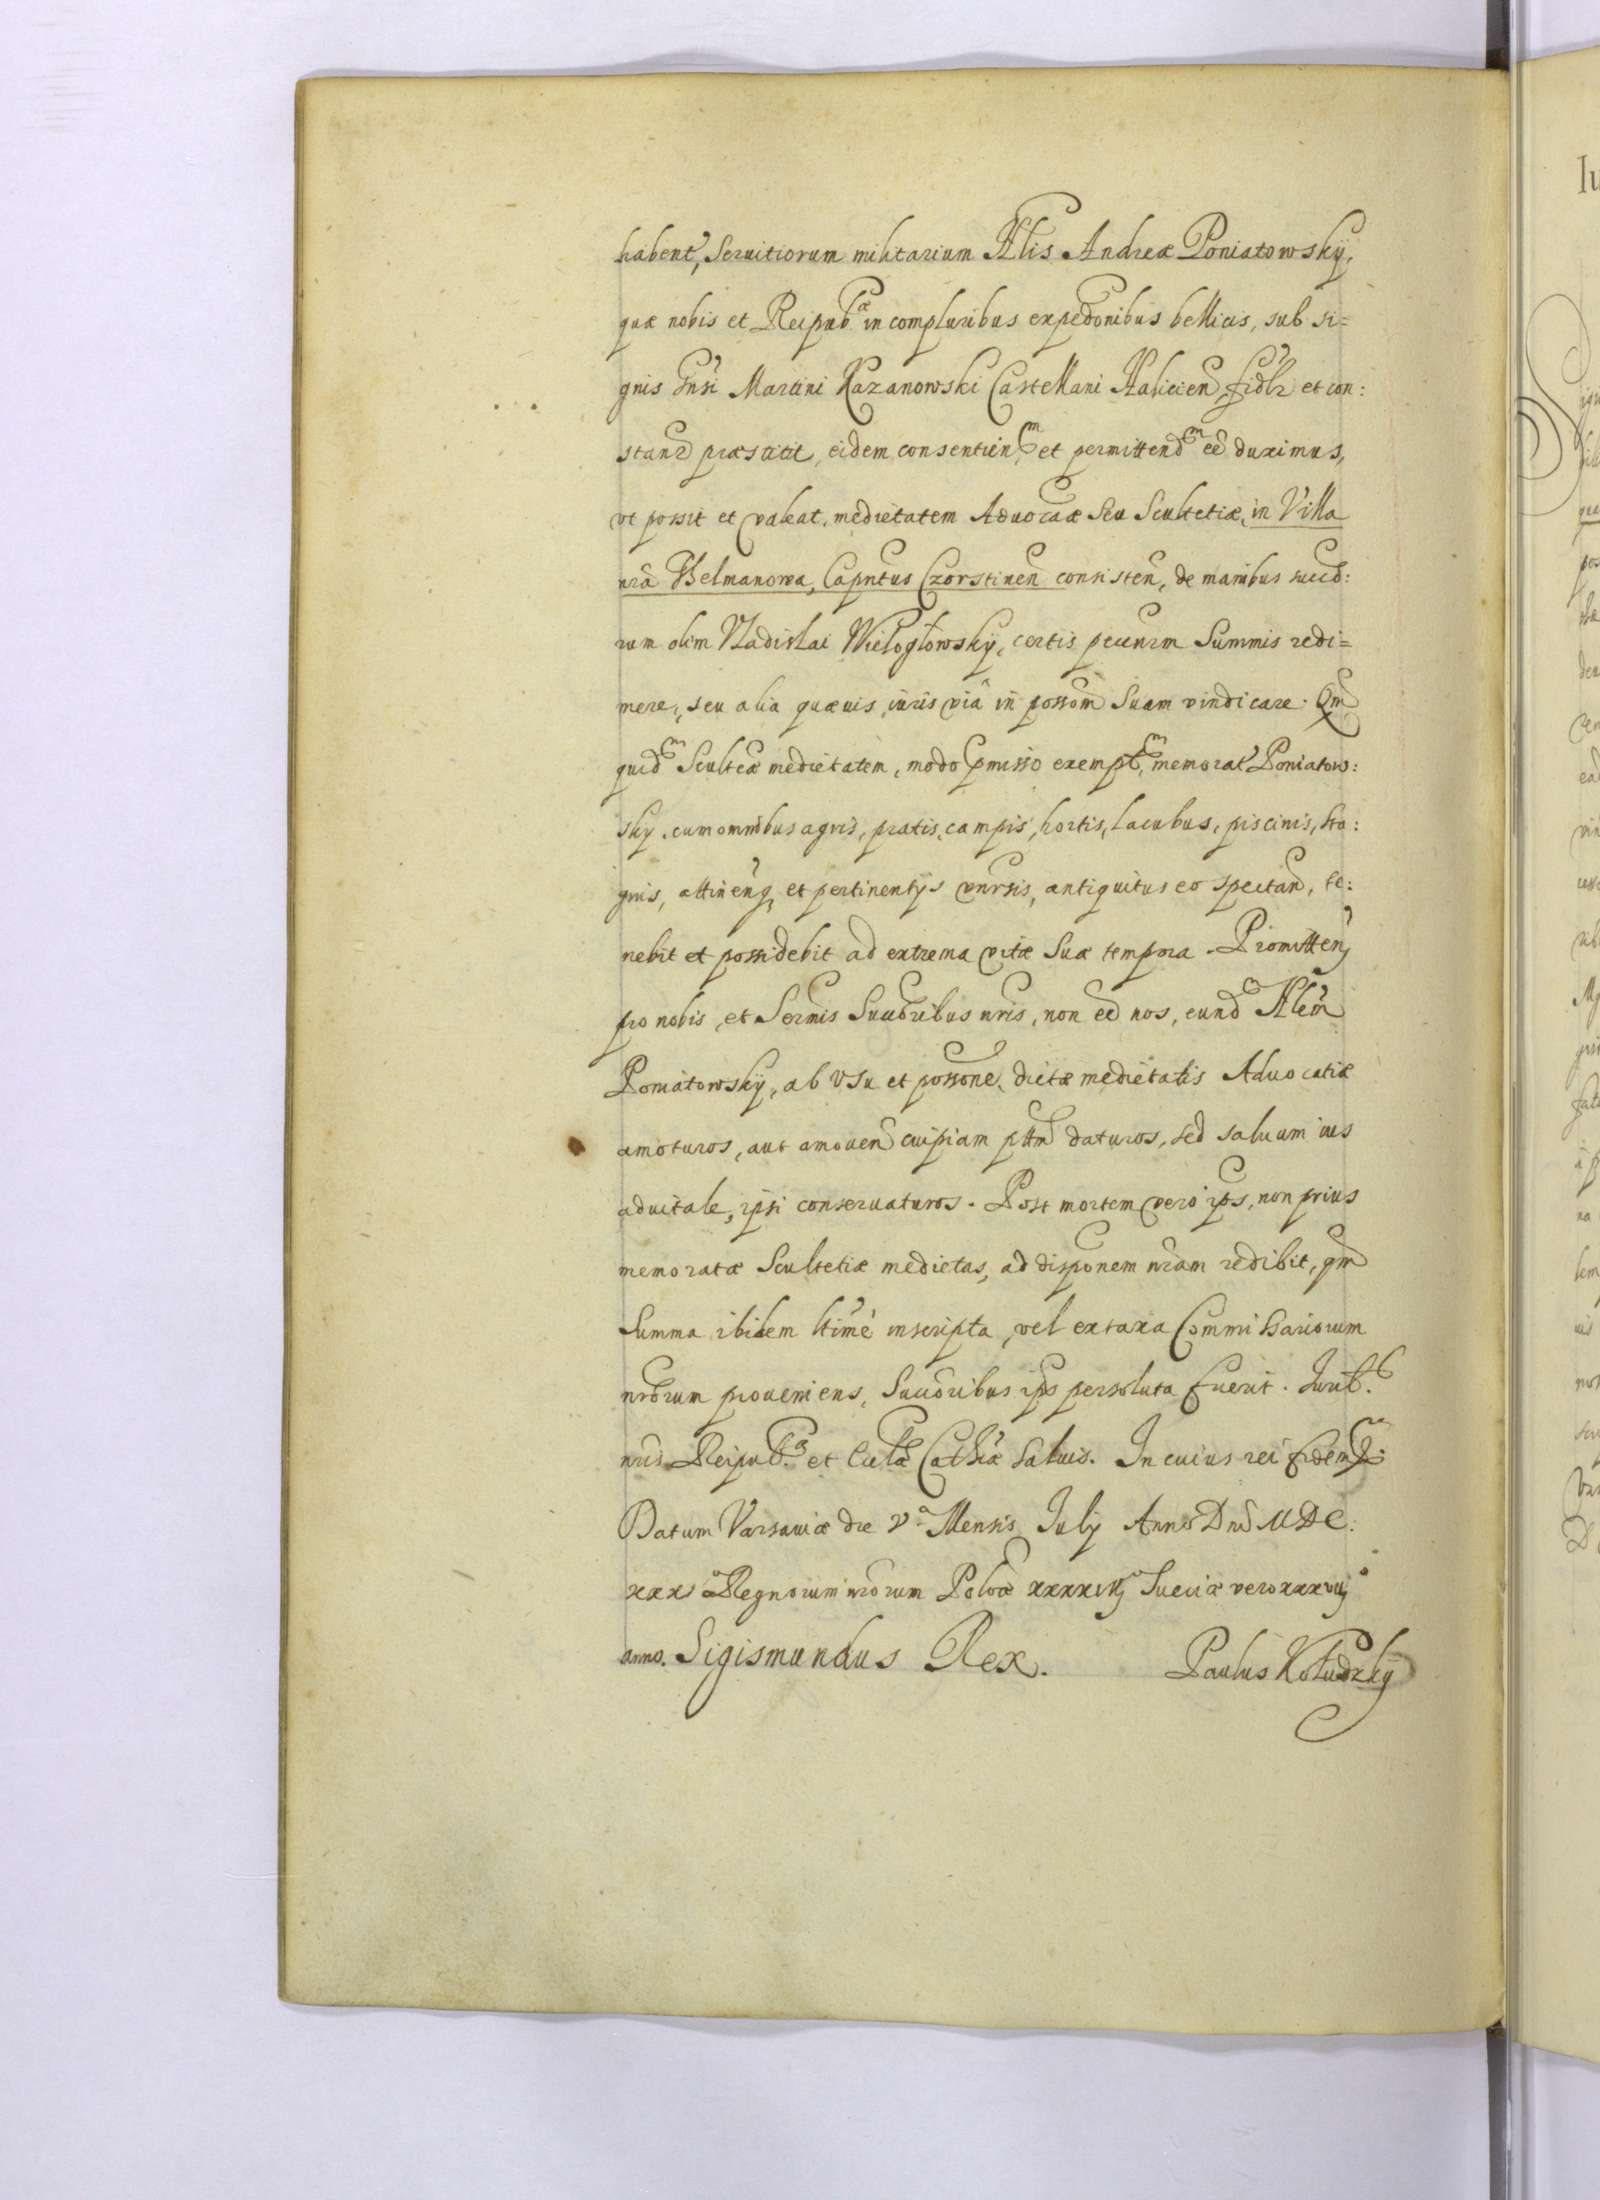 habent, Seruitiorum militarium Nlis Andreæ Poniatowsky,
quæ nobis et Reipub.æ in compluribus expedõnibus bellicis, sub si=
gnis Gnsi Martini Kazanowski Castellani Halicien, fidlr et con:
stanr præstitit, eidem consentien.m et permittend.m eẽ duximus,
vt possit et valeat, medietatem Aduocaæ Seu Scultetiæ, in Villa
nrã Thelmanowa, Capntus Czorstinen consisten, de manibus succõ:
rum olim Vladislai Wielogłowsky, certis pecunrm Summis redi=
mere, seu alia quæuis iuris viâ in possom Suam vindicare. Qm
quid.m Sculteæ medietatem, modo pmisso exempt.m memorat Poniatow:
sky, cum omnibus agris, pratis, campis, hortis, lacubus, piscinis, sta:
gnis, attinen, et pertinentijs vnrsis, antiquitus eo spectan, te:
nebit et possidebit ad extrema vitæ Suæ tempora. Promitten
pro nobis, et Sermis Succõribus nris, non eẽ nos, eund.m Nlem
Poniatowsky, ab vsu et possone, dictæ medietatis Aduocatiæ
amoturos, aut amouen cuipiam pttm daturos, sed saluum ius
aduitale, ipsi conseruaturos. Post mortem vero ips, non prius
memoratæ Scultetiæ medietas, ad disponem nram redibit, qm
Summa ibidem ltimè inscripta, vel ex taxa Commissariorum
nrõrum proueniens, Succõribus ips persoluta fuerit. Jurib.
nris Reipub.æ et Ecclæ Cathæ Saluis. In cuius rei fidem
Datum Varsauiæ die V.a Mensis July Anno Dni MDC:
xxxio Regnorum nrõrum Polõæ xxxxiiij Sueciæ vero xxxviij
anno. Sigismundus Rex. Paulus Kołudzky